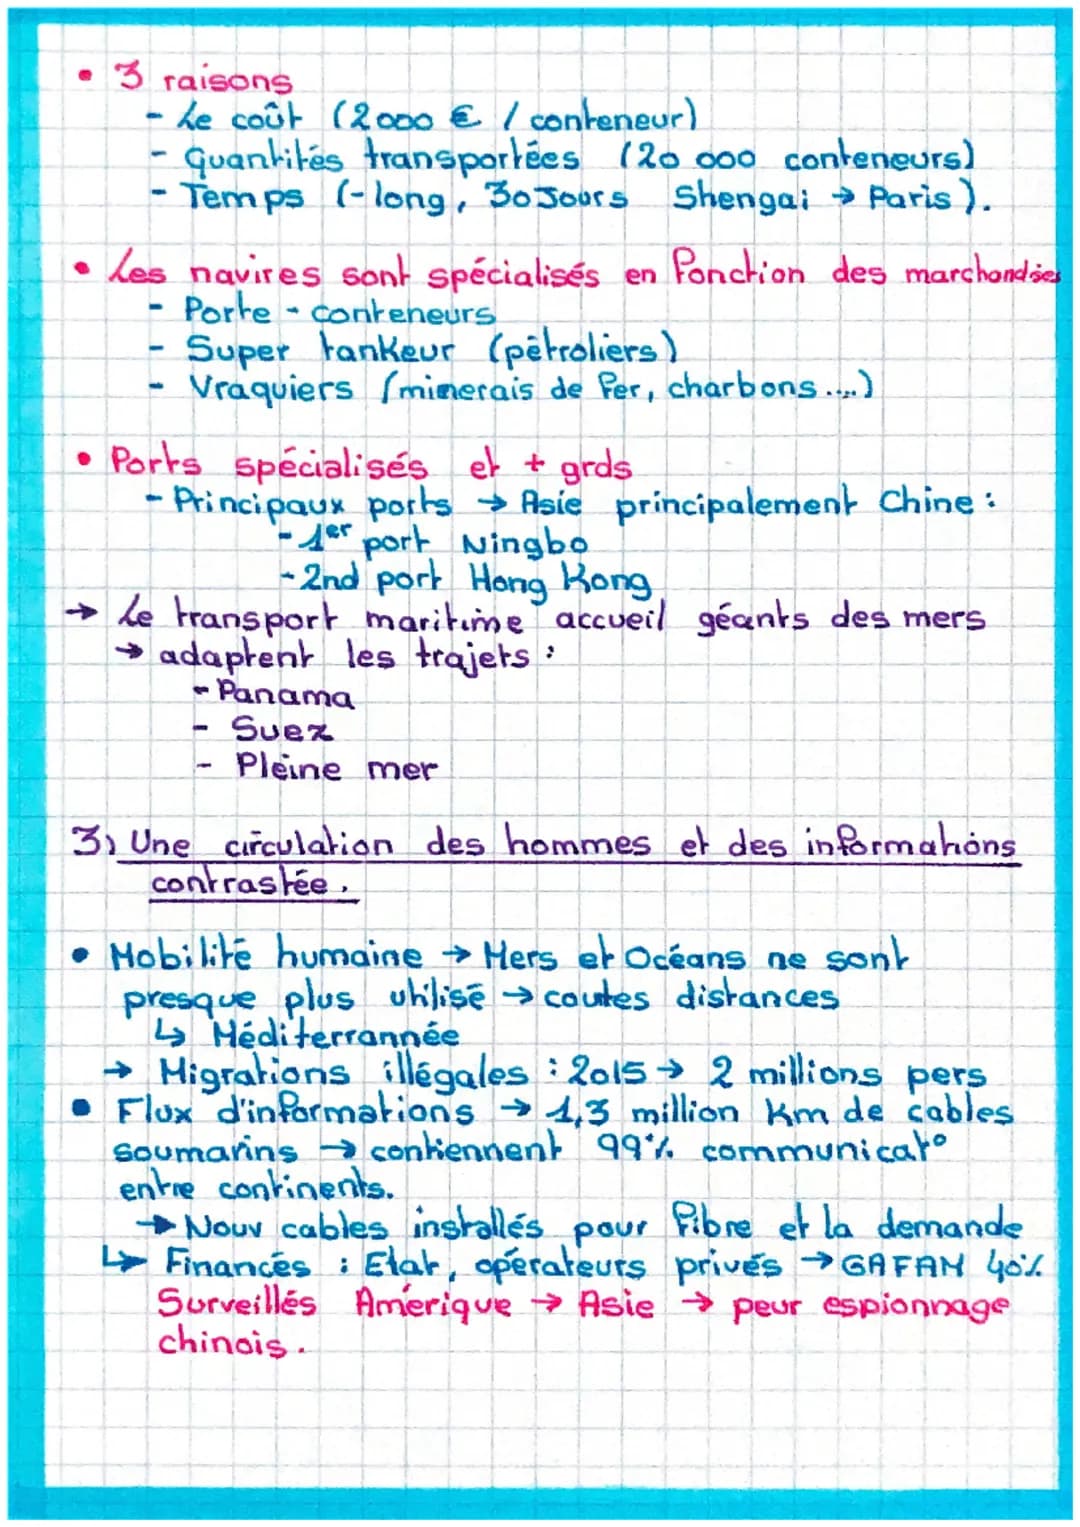 • 3 raisons
- Le coût (2000 € / conteneur)
- Quantités transportées (20 000 conteneurs)
- Temps (- long, 30 Jours Shengai → Paris).
• Les navires sont spécialisés en fonction des marchandises
- Porte - conteneurs
- Super tankeur (pétroliers)
- Vraquiers (minerais de fer, charbons ....)
• Ports spécialisés et + grds
- Principaux ports → Asie principalement Chine :
- 1er port Ningbo
- 2nd port Hong Kong
→ Le transport maritime accueil géants des mers
→ adaptent les trajets :
- Panama
- Suez
- Pleine mer
3) Une circulation des hommes et des informations
contrastée.
• Mobilité humaine → Mers et Océans ne sont
presque plus utilisé → coutes distances
↳ Méditerrannée
→ Migrations illégales : 2015 → 2 millions pers
• Flux d'informations → 1,3 million Km de cables
soumarins → contiennent 99% communicat°
entre continents.
→ Nouv cables installés pour fibre et la demande
↳ Financés : Etat, opérateurs privés → GAFAM 40%
Surveillés Amérique → Asie → peur espionnage
chinois.